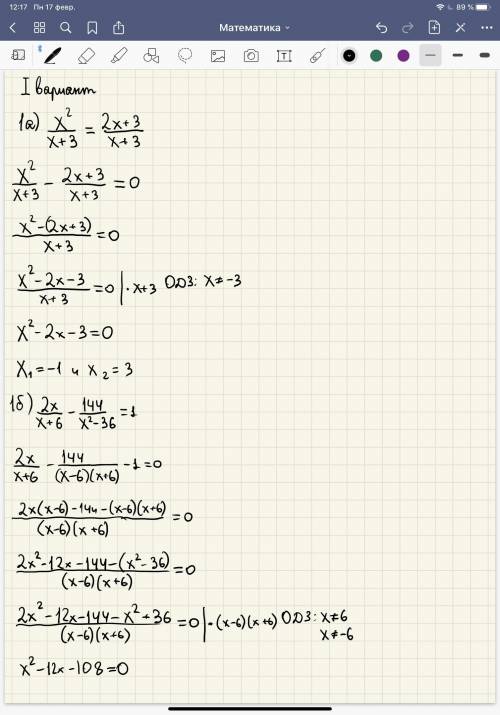 12:17 Пн 17 февр. 89 %
Математика
I вариант
1а) x²/(x+3) = (2x+3)/(x+3)
x²/(x+3) - (2x+3)/(x+3) = 0
(x²-(2x+3))/(x+3) = 0
(x²-2x-3)/(x+3) = 0 | · x+3 ОДЗ: x≠-3
x²-2x-3=0
x₁=-1 и x₂=3
1б) 2x/(x+6) - 144/(x²-36) = 1
2x/(x+6) - 144/((x-6)(x+6)) - 1 = 0
(2x(x-6)-144-(x-6)(x+6))/((x-6)(x+6)) = 0
(2x²-12x-144-(x²-36))/((x-6)(x+6)) = 0
(2x²-12x-144-x²+36)/((x-6)(x+6)) = 0 | · (x-6)(x+6) ОДЗ: x≠6
x≠-6
x²-12x-108=0